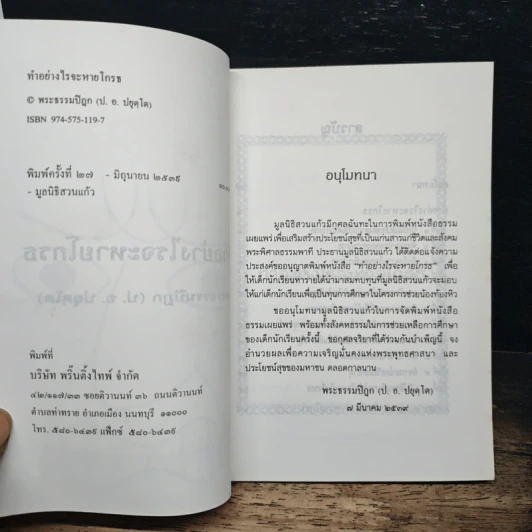 ทำอย่างไรจะหายโกรธ
© พระธรรมปิฎก (ป. อ. ปยุตฺโต)
ISBN 974-575-119-7
พิมพ์ครั้งที่ ๒๗ - มิถุนายน ๒๕๓๙
- มูลนิธิสวนแก้ว
พิมพ์ที่
บริษัท พริ้นติ้งไทพ์ จำกัด
๔๒/๑๑๗/๓๓ ซอยติวานนท์ ๓๖ ถนนติวานนท์
ตำบลท่าทราย อำเภอเมือง นนทบุรี ๑๑๐๐๐
โทร. ๕๘๐-๖๔๓๙ แฟ็กซ์ ๕๘๐-๖๔๓๙
อนุโมทนา
มูลนิธิสวนแก้วมีกุศลฉันทะในการพิมพ์หนังสือธรรม
เผยแพร่ เพื่อเสริมสร้างประโยชน์สุขที่เป็นแก่นสารแก่ชีวิตและสังคม
พระพิศาลธรรมพาที ประธานมูลนิธิสวนแก้ว ได้ติดต่อแจ้งความ
ประสงค์ขออนุญาตพิมพ์หนังสือ "ทำอย่างไรจะหายโกรธ" เพื่อ
ให้เด็กนักเรียนหารายได้นำมาสมทบทุนที่มูลนิธิสวนแก้วจะมอบ
ให้แก่เด็กนักเรียนเพื่อเป็นทุนการศึกษาในโครงการช่วยน้องท้องหิว
ขออนุโมทนามูลนิธิสวนแก้วในการจัดพิมพ์หนังสือ
ธรรมเผยแพร่ พร้อมทั้งสังคหธรรมในการช่วยเหลือการศึกษา
ของเด็กนักเรียนครั้งนี้ ขอกุศลจริยาที่ได้ร่วมกันบำเพ็ญนี้ จง
อำนวยผลเพื่อความเจริญมั่นคงแห่งพระพุทธศาสนา และ
ประโยชน์สุขของมหาชน ตลอดกาลนาน
พระธรรมปิฎก (ป. อ. ปยุตฺโต)
๗ มีนาคม ๒๕๓๙